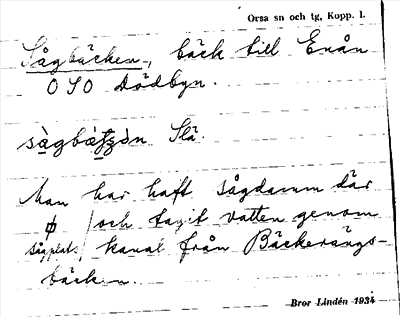 Orsa sn och tg, Kopp. l.
Sågbäcken, bäck till Enån
OSO Dödbyn.
Slä.
Man har haft sågdamm där
och tagit vatten genom
sågplats kanal från Bäckerängs-
bäcken.
Bror Lindén 1934